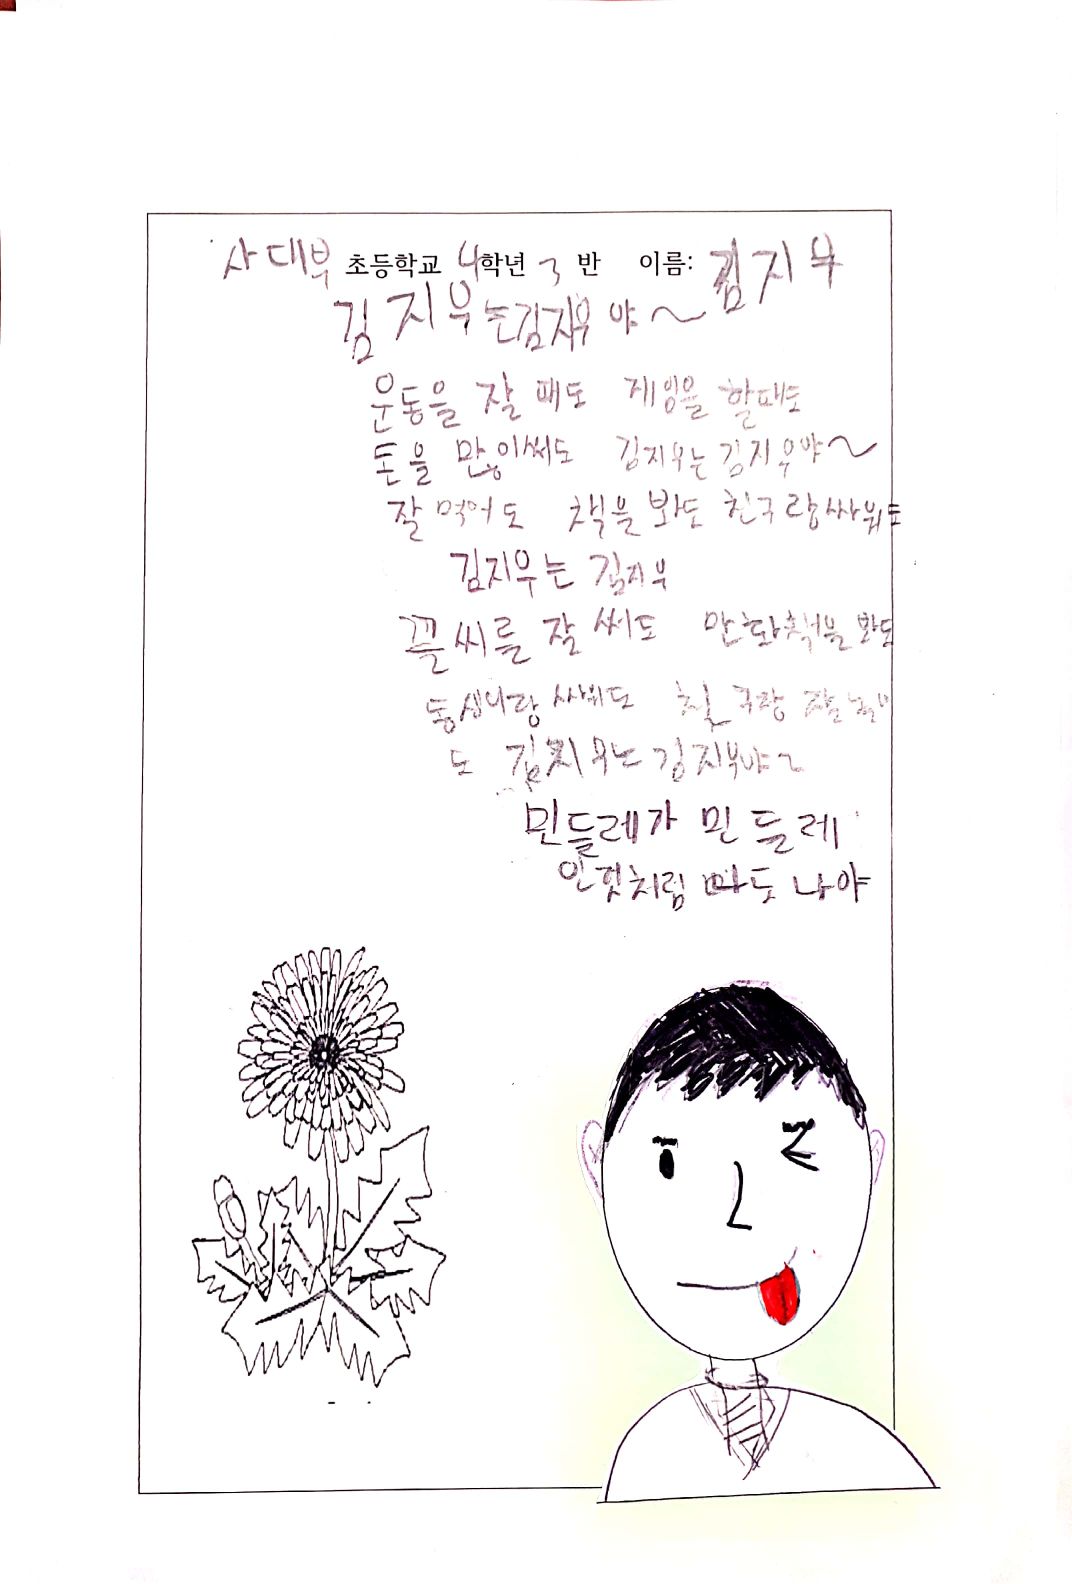 사대부 초등학교 4학년 3 반 이름: 김지우
김지우는김지우 야~
운동을 잘 때도 게임을 할때도
돈을 많이써도 김지우는김지우야~
잘 먹어도 책을 봐도 친구랑싸워도
김지우는 김지우
글씨를 잘 써도 만화책을 봐도
동생이랑 싸워도 친구랑 잘
도 김지우는 김지우야~
민들레가 민들레
처럼 나야